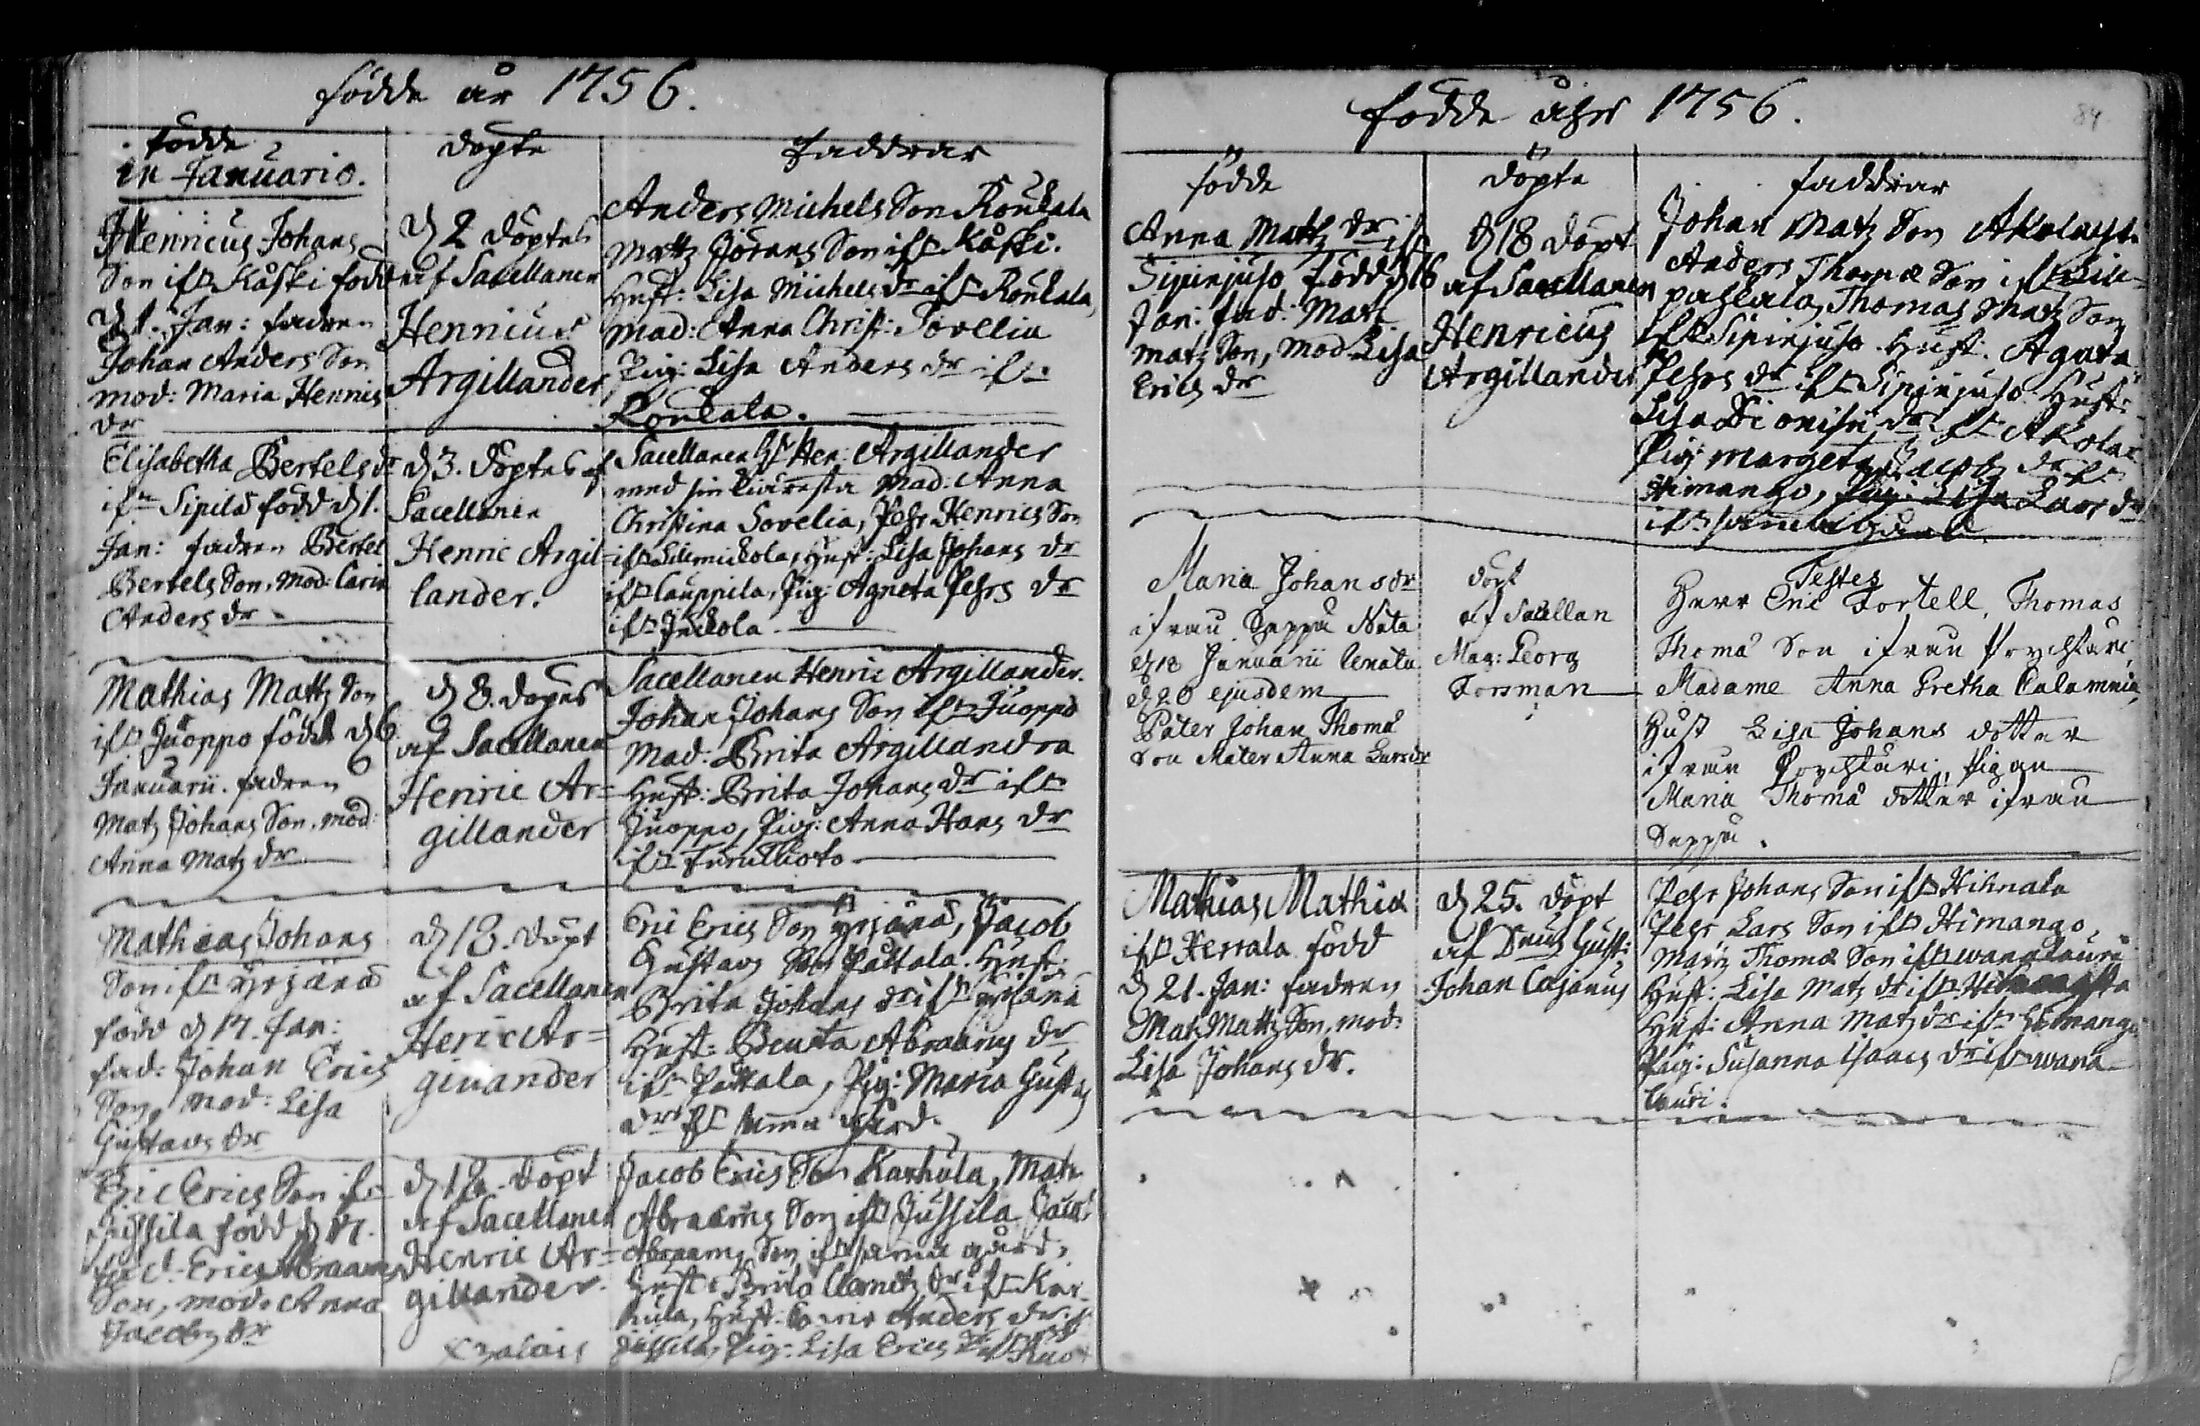 födde år 1756.
födde
döpte
Faddrar
in Januario.
Henricus Johans
Son ifr Kåski född
d 1. Jan: fadren
Johan Anders Son
mod: Maria Henrics
dr
d 2 döptes
af Sacellanen
Henricus
Argillander
Anders Michels Son Roukala
Mattz Jörans Son ifr Kåski.
Hust: Lisa Michels dr ifr Roukala,
Mad: Anna Christ: Sovelia
Pig: Lisa Anders dr ifr
Roukala.
Elisabetha Bertels dr
ifrn Sipilä född d 1.
Jan: fadren Bertel
Bertels Son, Mod: Carin
Anders dr
d 3. döptes af
Sacellanen
Henric Argil-
lander.
Sacellanen Hr Hen: Argillander
med sin kiäresta Mad: Anna
Christina Sovelia, Pehr Henrics Son
ifr Lillmickola, Hust: Lisa Johans dr
ifr Cauppila, Pig: Agneta Pehrs dr
ifr Juckola
Mathias Mattz Son
ifr Juoppo född d 6
Januarii. fadren
Matz Johans Son, mod:
Anna Matz dr
d 8. döptes
af Sacellanen
Henric Ar=
gillander
Sacellanen Henric Argillander.
Johan Johans Son ifr Juoppo
Mad: Brita Argillandra
Hust: Brita Johans dr ifr
Juoppo, Pig: Anna Hans dr
ifr
Mathias Johans
Son ifr Yrjänä
född d 17. Jan:
fad: Johan Erics
Son, Mod: Lisa
Gustavs dr
d 18. döpt
af Sacellanen
Henric Ar=
gillander
Eric Erics Son Yrjänä, Jacob
Gustavs Son Pattala. Hust:
Brita Johans dr ifr Yrjänä
Hust: Beata Abrahams dr
ifr Pattala, Pig: Maria Gustavs
dr ifr samma gård.
Eric Erics Son ifr
Jussila född d 17.
fad: Erics Abraams
Son, mod: Anna
Jacobs dr
d 18. döpt
af Sacellanen
Henric Ar=
gillander.
Jacob Erics Son Karhula, Matz
Abraams Son ifr Jussila Jacob
Abraams Son ifr samma gård,
Hust: Brita Clemetz dr ifr Kar-
hula, Hust: Carin Anders dr ifr
Jussila, Pig: Lisa Erics dr ifr
födde åhr 1756.
84
födde
döpte
faddrar
Anna Mattz dr ifr
Sipinjuso född d 16
Jan: fad: Matz
Matz Son, Mod: Lisa
Erics dr
d 18 döpt
af Sacellanen
Henricus
Argillander
Johan Matz Son
Anders Thomæ Son ifr Lill-
pahkala, Thomas Matz Son
ifr Sipinjuso. Hust: Agata
Pehrs dr ifr Sipinjuso Hust:
Lisa Dionisii dr ifr
Pig: Margeta Jacobs dr ifr
Himango, Pig: Lisa Lars dr
ifr samma gård.
Maria Johans dr
ifrån Seppä Nata
d 18 Januarii Renata
d 20 ejusdem
Pater Johan Thomæ
Son Mater Anna Larsdr
döpt
af Sacellan
Mag: Georg
Forsman
Testes
Herr Eric Tortell, Thomas
Thomæ Son ifrån Pöyhkäri,
Madame Anna Gretha Calamnia,
Hust Lisa Johans dotter
ifrån Pöyhkäri, Pigan
Maria Thomæ dotter ifrån
Seppä.
Mathias Mathiæ
ifr Kerrala född
d 21. Jan: fadren
Matz Mattz Son, mod:
Lisa Johans dr.
d 25. döpt
af Gust:
Johan Cajanus
Pehr Johans Son ifr Hihnala
Pehr Lars Son ifr Himango,
Mattz Thomæ Son ifr wanalauri
Hust: Lisa Matz dr ifr
Hust: Anna Matz dr ifr Himango
Pig: Susanna Isaacs dr ifr wana-
lauri.